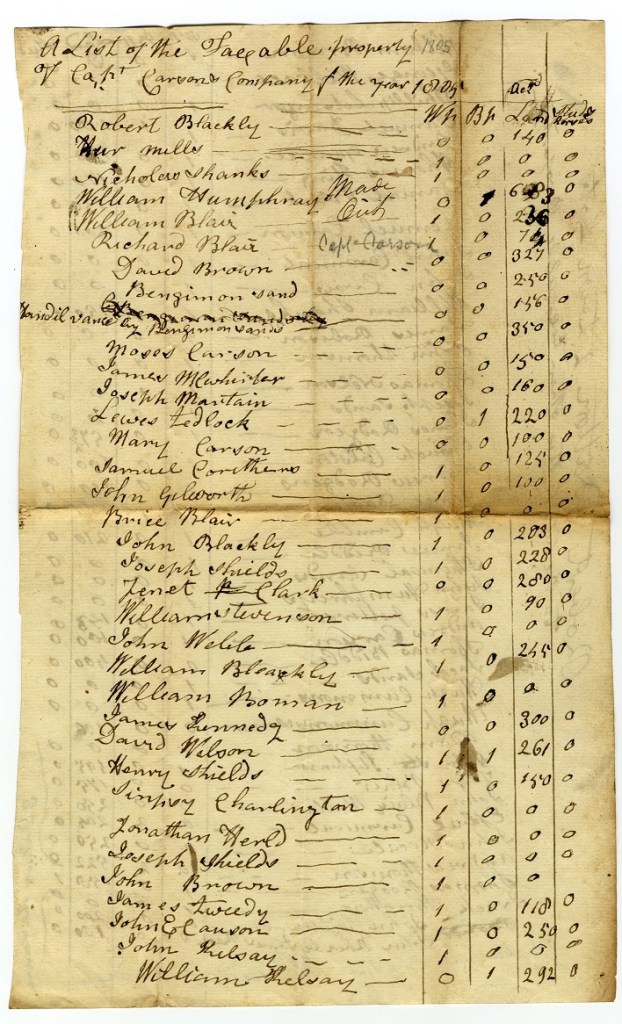 A List of the Taxable property 1805
of Capt Carsons Company f the year 1804
Wp Bp Land Stud horses
Robert Blackly 0 0 140 0
Hur Mills 1 0 0 0
Nicholes Shanks 1 0 0 0
William Humphray Made 0 1 0
William Blair Out 1 0 236 0
Richard Blair Capt Carson 0 0 74 0
David Brown 0 0 327 0
Bengimon Sand 0 0 250 0
Yandil vance by Bengimon Sands 0 0 156 0
Moses Carson 0 0 350 0
James McWhirter 0 0 150 0
Joseph Martain 0 0 160 0
Lewes Tedlock 0 1 220 0
Mary Carson 0 0 100 0
Samuel Corithers 1 0 125 0
John Gilworth 1 0 100 0
Brice Blair 1 0 0 0
John Blackly 1 0 203 0
Joseph Shields 1 0 228 0
Jenet Clark 0 0 280 0
William Stevenson 1 0 90 0
John Webb 1 0 0 0
William Bleakly 1 0 245 0
William Boman 1 0 0 0
James Kennedy 0 0 300 0
David Wilson 1 1 261 0
Henry Shields 1 0 150 0
Sinpsy Charlington 1 0 0 0
Jonathan Herld 1 0 0 0
Joseph Shields 1 0 0 0
John Brown 1 0 0 0
James Tweedy 1 0 118 0
John Clauson 1 0 250 0
John Kelsay 1 0 0 0
William Kelsay 0 1 292 0